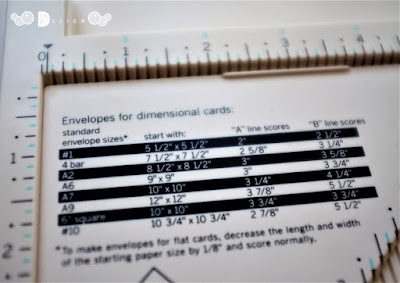 DESIGN
0 1 2 3 4
Envelopes for dimensional cards:
standard
envelope sizes* start with: "A" line scores "B" line scores
#1 5 1/2" x 5 1/2" 2" 2 1/2"
4 bar 7 1/2" x 7 1/2" 2 5/8" 3 1/4"
A2 8 1/2" x 8 1/2" 3" 3 5/8"
A6 9" x 9" 3" 3 3/4"
A7 10" x 10" 3 1/4" 4 1/4"
A9 12" x 12" 3 7/8" 5 1/2"
6" square 10" x 10" 3 3/4" 3 3/4"
#10 10 3/4" x 10 3/4" 2 7/8" 5 1/2"
*To make envelopes for flat cards, decrease the length and width
of the starting paper size by 1/8" and score normally.
1
2